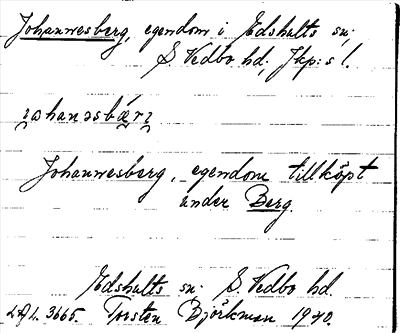 Johannesberg, egendom i Edshults sn.
S. Vedbo hd, Jkp:s l.
Johannesberg, egendom tillköpt
under Berg.
Edshults sn. S. Vedbo hd.
3665. Torsten Björkman 1940.